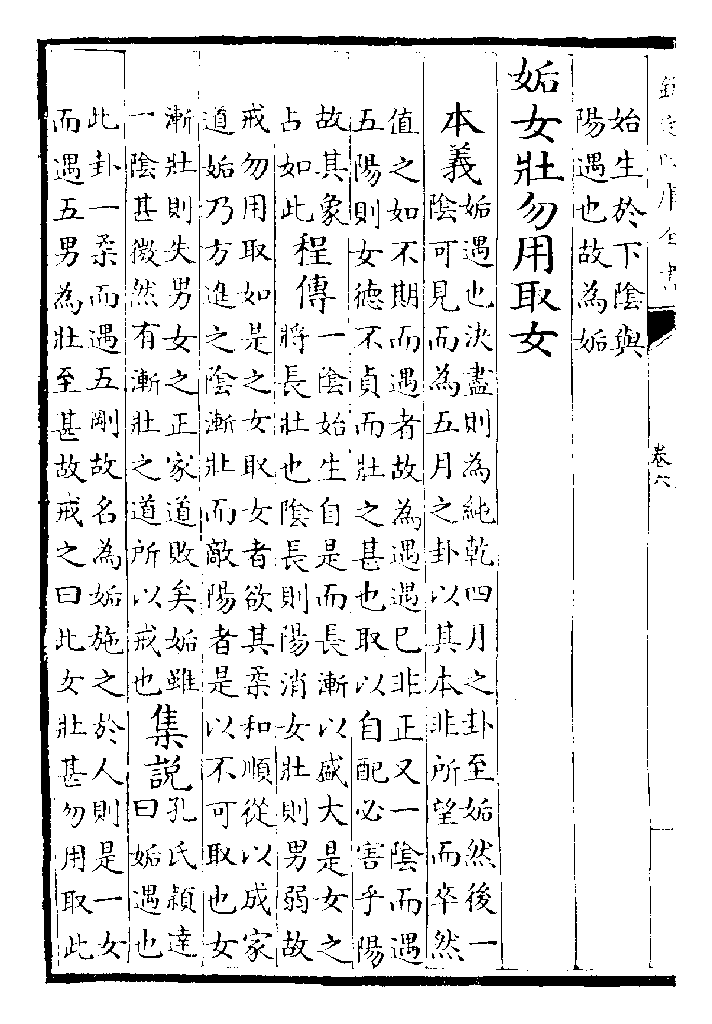 欽定四庫全書
卷六
始生於下陰與
陽遇也故為姤
姤女壯勿用取女
本義
姤遇也決盡則為純乾四月之卦至姤然後一
陰可見而為五月之卦以其本非所望而卒然
值之如不期而遇者故為遇遇已非正又一陰而遇
五陽則女德不貞而壯之甚也取以自配必害乎陽
故其象
占如此
程傳
一陰始生自是而長漸以盛大是女之
將長壯也陰長則陽消女壯則男弱故
戒勿用取如是之女取女者欲其柔和順從以成家
道姤乃方進之陰漸壯而敵陽者是以不可取也女
漸壯則失男女之正家道敗矣姤雖
一陰甚微然有漸壯之道所以戒也
集說
孔氏穎達
曰姤遇也
此卦一柔而遇五剛故名為姤施之於人則是一女
而遇五男為壯至甚故戒之曰此女壯甚勿用取此